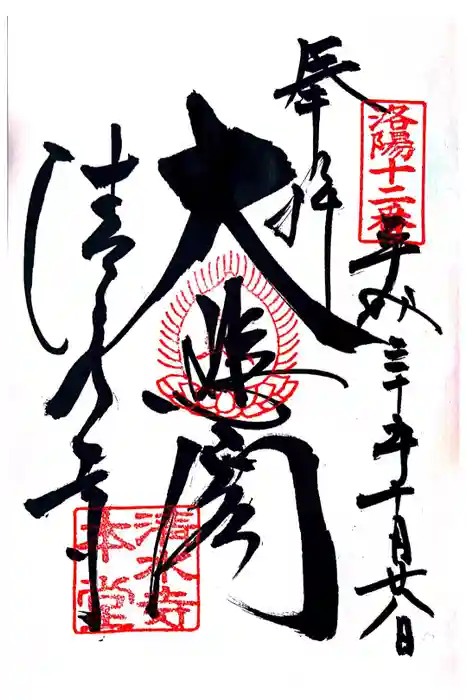 奉拝
洛陽十二番
平成三十年十月廿八日
大悲閣
清水寺
清水寺
本堂